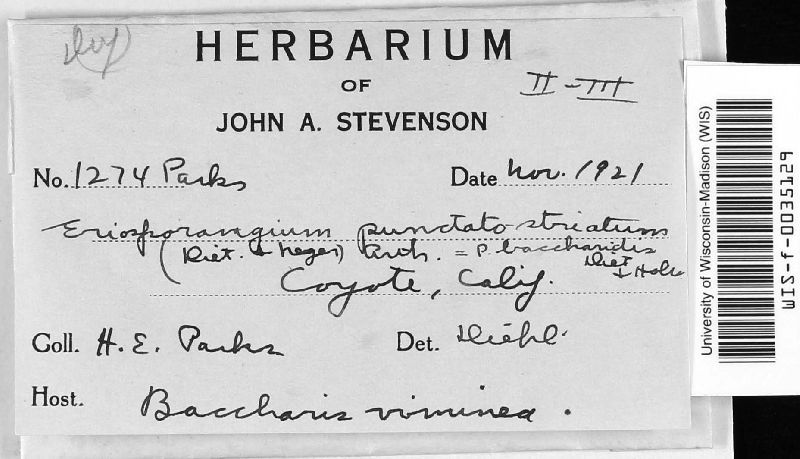 Dup
HERBARIUM
OF
II-III
JOHN A. STEVENSON
No. 1274 Parks Date Nov. 1921
Eriosporangium punctato striatum
(Diet. & Neger) Arth. = P. baccharidis
Diet & Holw
Coyote, Calif.
Coll. H. E. Parks Det. Diehl.
Host. Baccharis viminea.
University of Wisconsin-Madison (WIS)
WIS-f-0035129